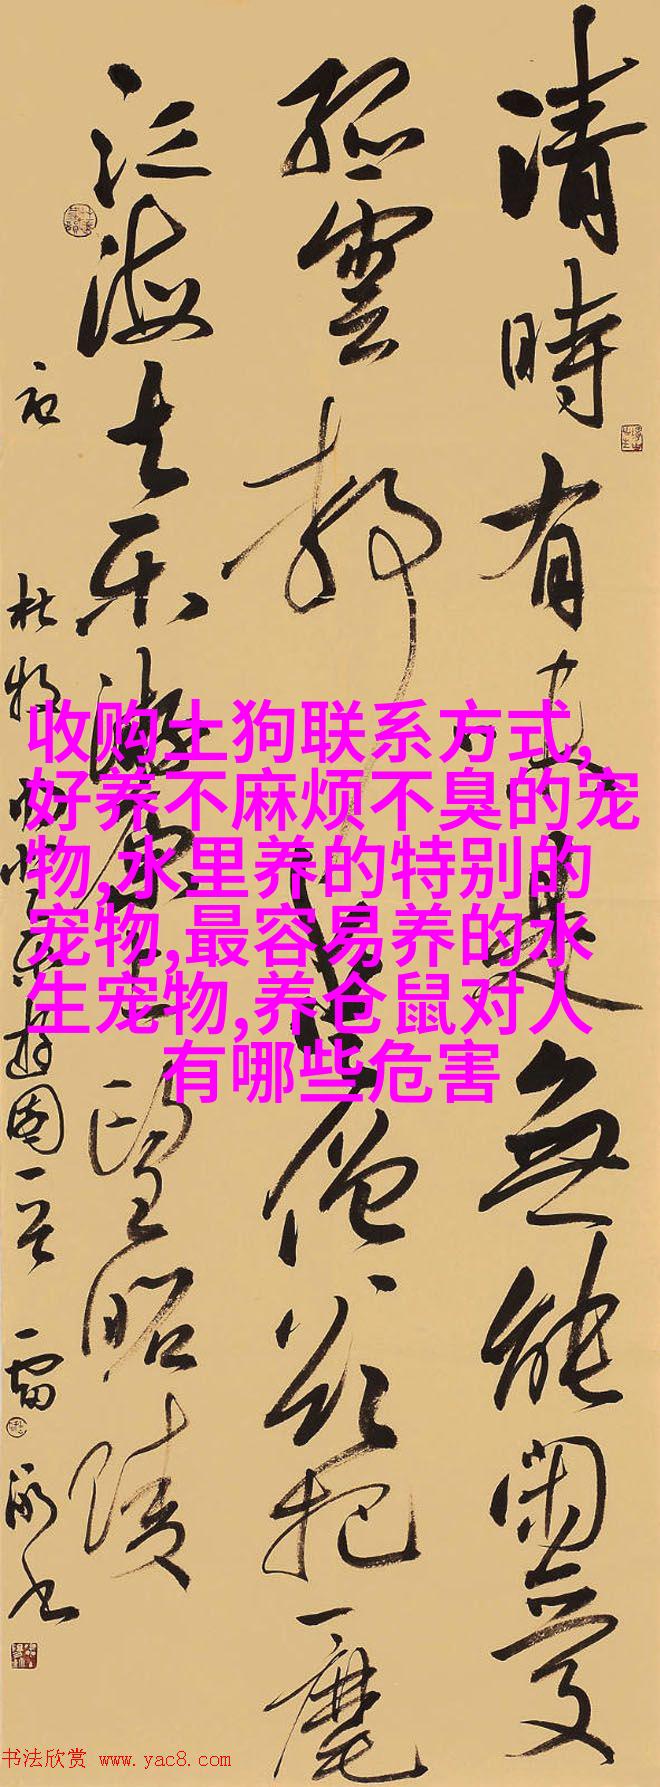 清時有味是無能閑愛
孤雲静愛僧欲把一麾
江海去乐游原上望昭陵
杜牧
收购土狗联系方式,
好养不麻烦不臭的宠
物,水里养的特别的
宠物,最容易养的水
生宠物,养仓鼠对人
有哪些危害
书法欣赏 www.yac8.com